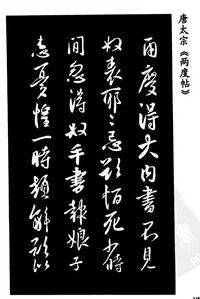 唐太宗《两度帖》
两度得大内书不见
奴表耶耶忌欲恒死少时
间忽得奴手书报娘子
患忧惶一时顿解欲似